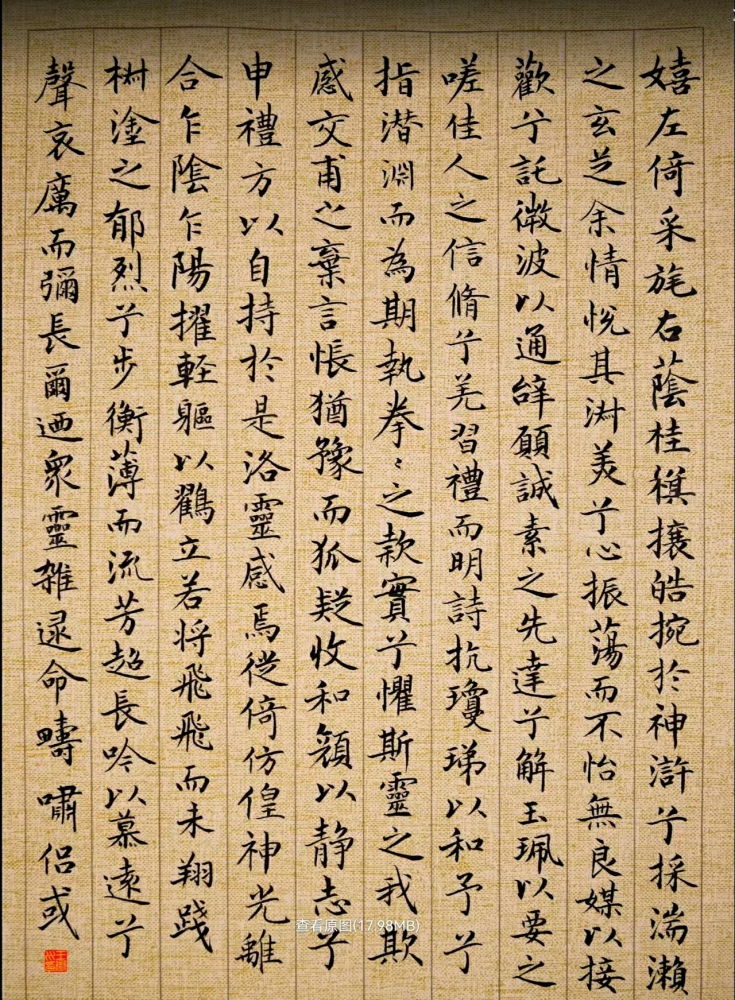 嬉左倚采旄右蔭桂旗攘皓捥於神滸兮採湍瀨
之玄芝余情悅其淑美兮心振蕩而不怡無良媒以接
歡兮託微波以通辭願誠素之先達兮解玉珮以要之
嗟佳人之信脩兮羌習禮而明詩抗瓊珶以和予兮
指潜淵而為期執拳〻之款實兮懼斯靈之我欺
感交甫之棄言悵猶豫而狐疑收和顏以静志兮
申禮方以自持於是洛靈感焉徙倚仿偟神光離
合乍陰乍陽擢軽軀以鶴立若将飛飛而未翔踐
樹塗之郁烈兮步衡薄而流芳超長吟以慕遠兮
聲哀厲而彌長爾迺眾靈雜逯命疇嘯侣或
查看原图(17.98MB)